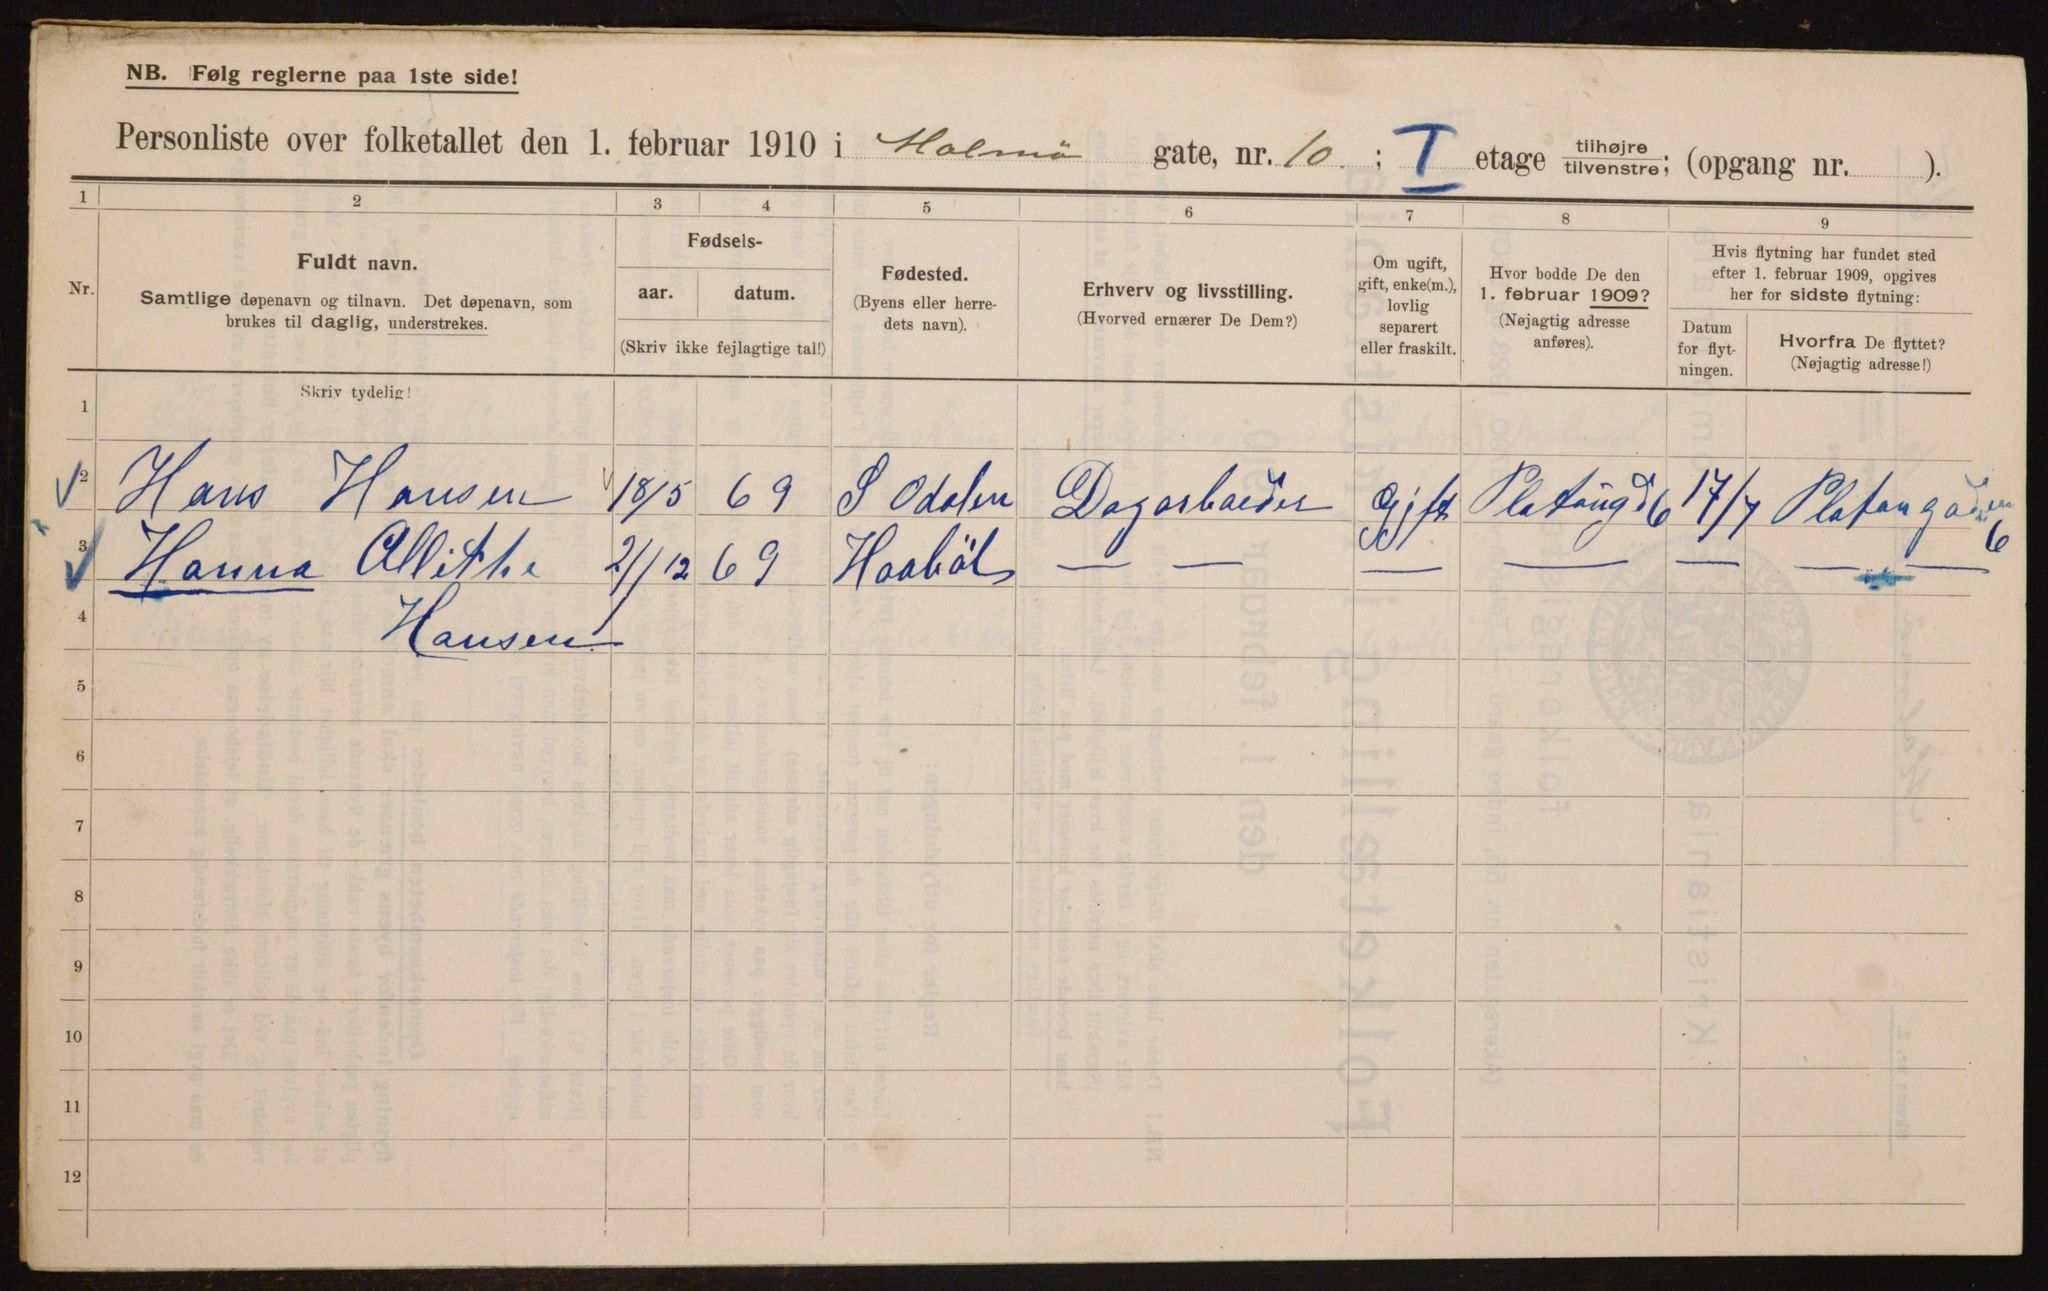 NB. Følg reglerne paa 1ste side!
Personliste over folketallet den 1. februar 1910 i Malmö gate, nr. 10 ; I etage tilhøjre/tilvenstre; (opgang nr. ).
1 2 3 4 5 6 7 8 9
Nr.
Fuldt navn.
Samtlige døpenavn og tilnavn. Det døpenavn, som
brukes til daglig, understrekes.
Fødsels-
aar. datum.
(Skriv ikke fejlagtige tal!)
Fødested.
(Byens eller herre-
dets navn).
Erhverv og livsstilling.
(Hvorved ernærer De Dem?)
Om ugift,
gift, enke(m.),
lovlig
separert
eller fraskilt.
Hvor bodde De den
1. februar 1909?
(Nøjagtig adresse
anføres).
Hvis flytning har fundet sted
efter 1. februar 1909, opgives
her for sidste flytning:
Datum
for flyt-
ningen.
Hvorfra De flyttet?
(Nøjagtig adresse!)
Skriv tydelig!
1
2 Hans Hansen 18/5 69 S Odalen Dagarbaeder Gift Platougd 6 17/7 Platougaden 6
3 Hanna 2/12 69 — — — — — — —
4 Hansen
5
6
7
8
9
10
11
12